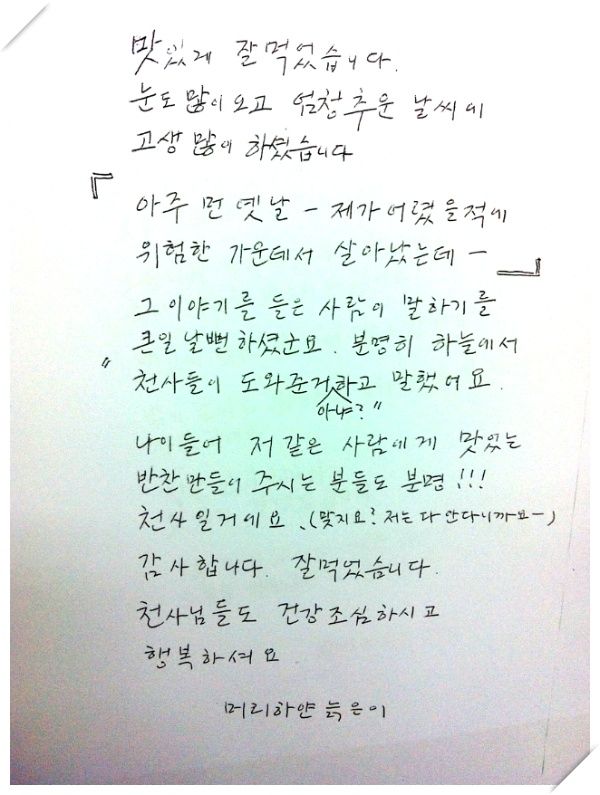 맛있게 잘먹었습니다.
눈도 많이오고 엄청추운 날씨에
고생 많이 하셨습니다
『아주 먼 옛날 - 제가어렸을적에
위험한 가운데서 살아났는데 -』
그 이야기를 들은 사람이 말하기를
큰일날뻔하셨군요. 분명히 하늘에서
"천사들이 도와준거하고 말했어요.
아냐?"
나이들어 저같은 사람에게 맛있는
반찬만들어 주시는 분들도 분명!!!
천사일거에요. (맞지요? 저는다안다니까요-)
감사합니다. 잘먹었습니다.
천사님들도 건강조심하시고
행복하셔요
머리하얀늙은이